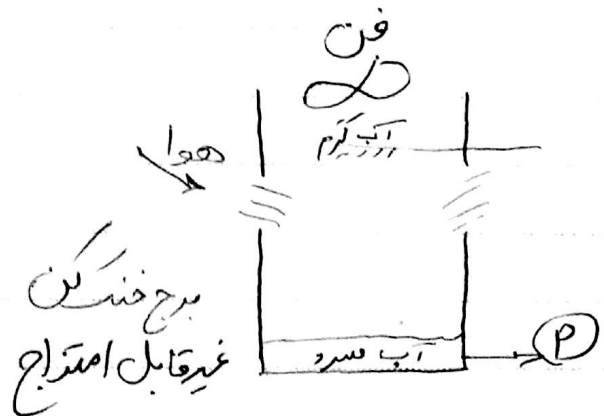 فن
آب گرم
هوا
برج خنک کن
غیر قابل امتزاج
آب سرد
P